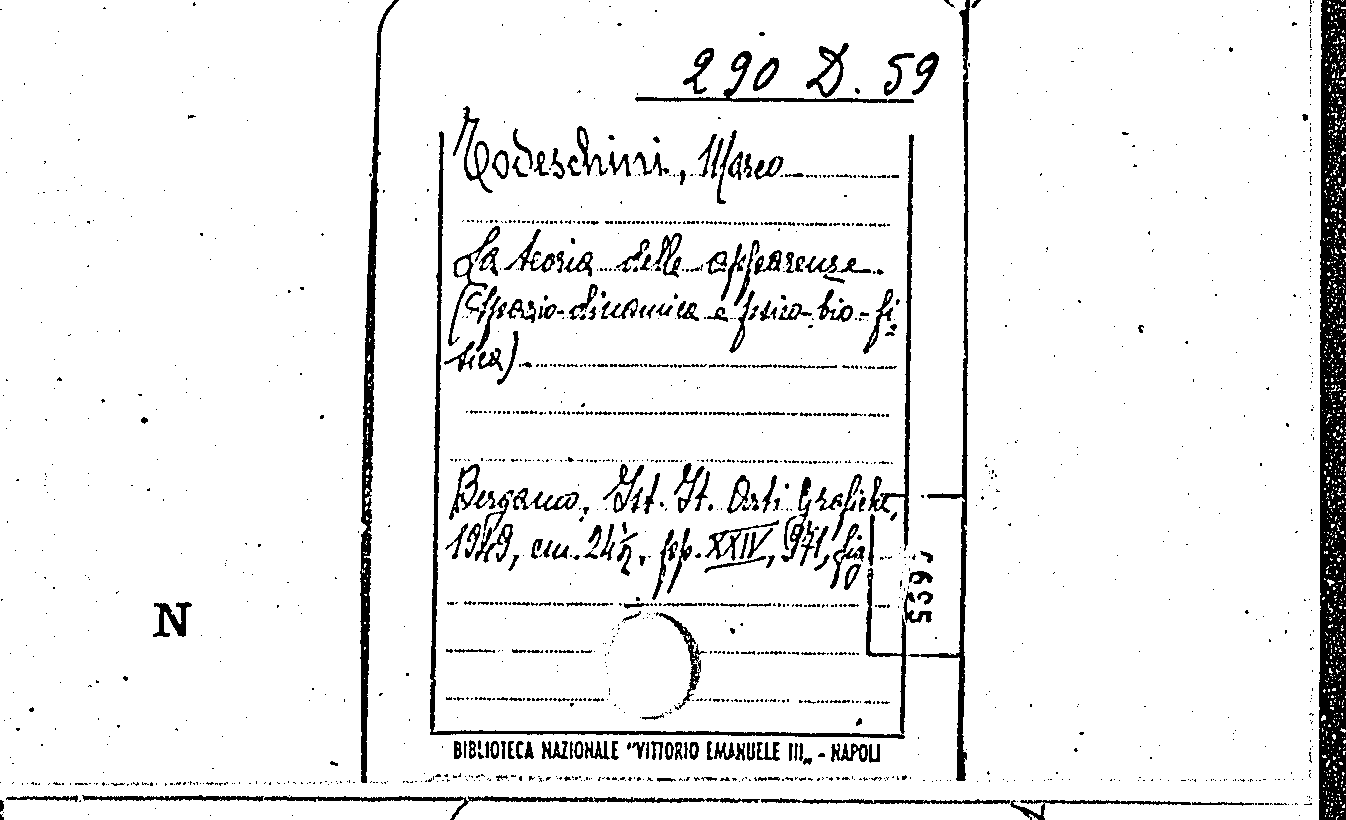 290 D. 59
Todeschini, Marco
La teoria delle apparenze.
(Spazio-dinamica e psico-bio-fi-
sica).
Bergamo, Ist. It. Arti Grafiche,
1949, cm. 24½, pp. XXIV, 971, fig.
5693
N
BIBLIOTECA NAZIONALE "VITTORIO EMANUELE III„ - NAPOLI